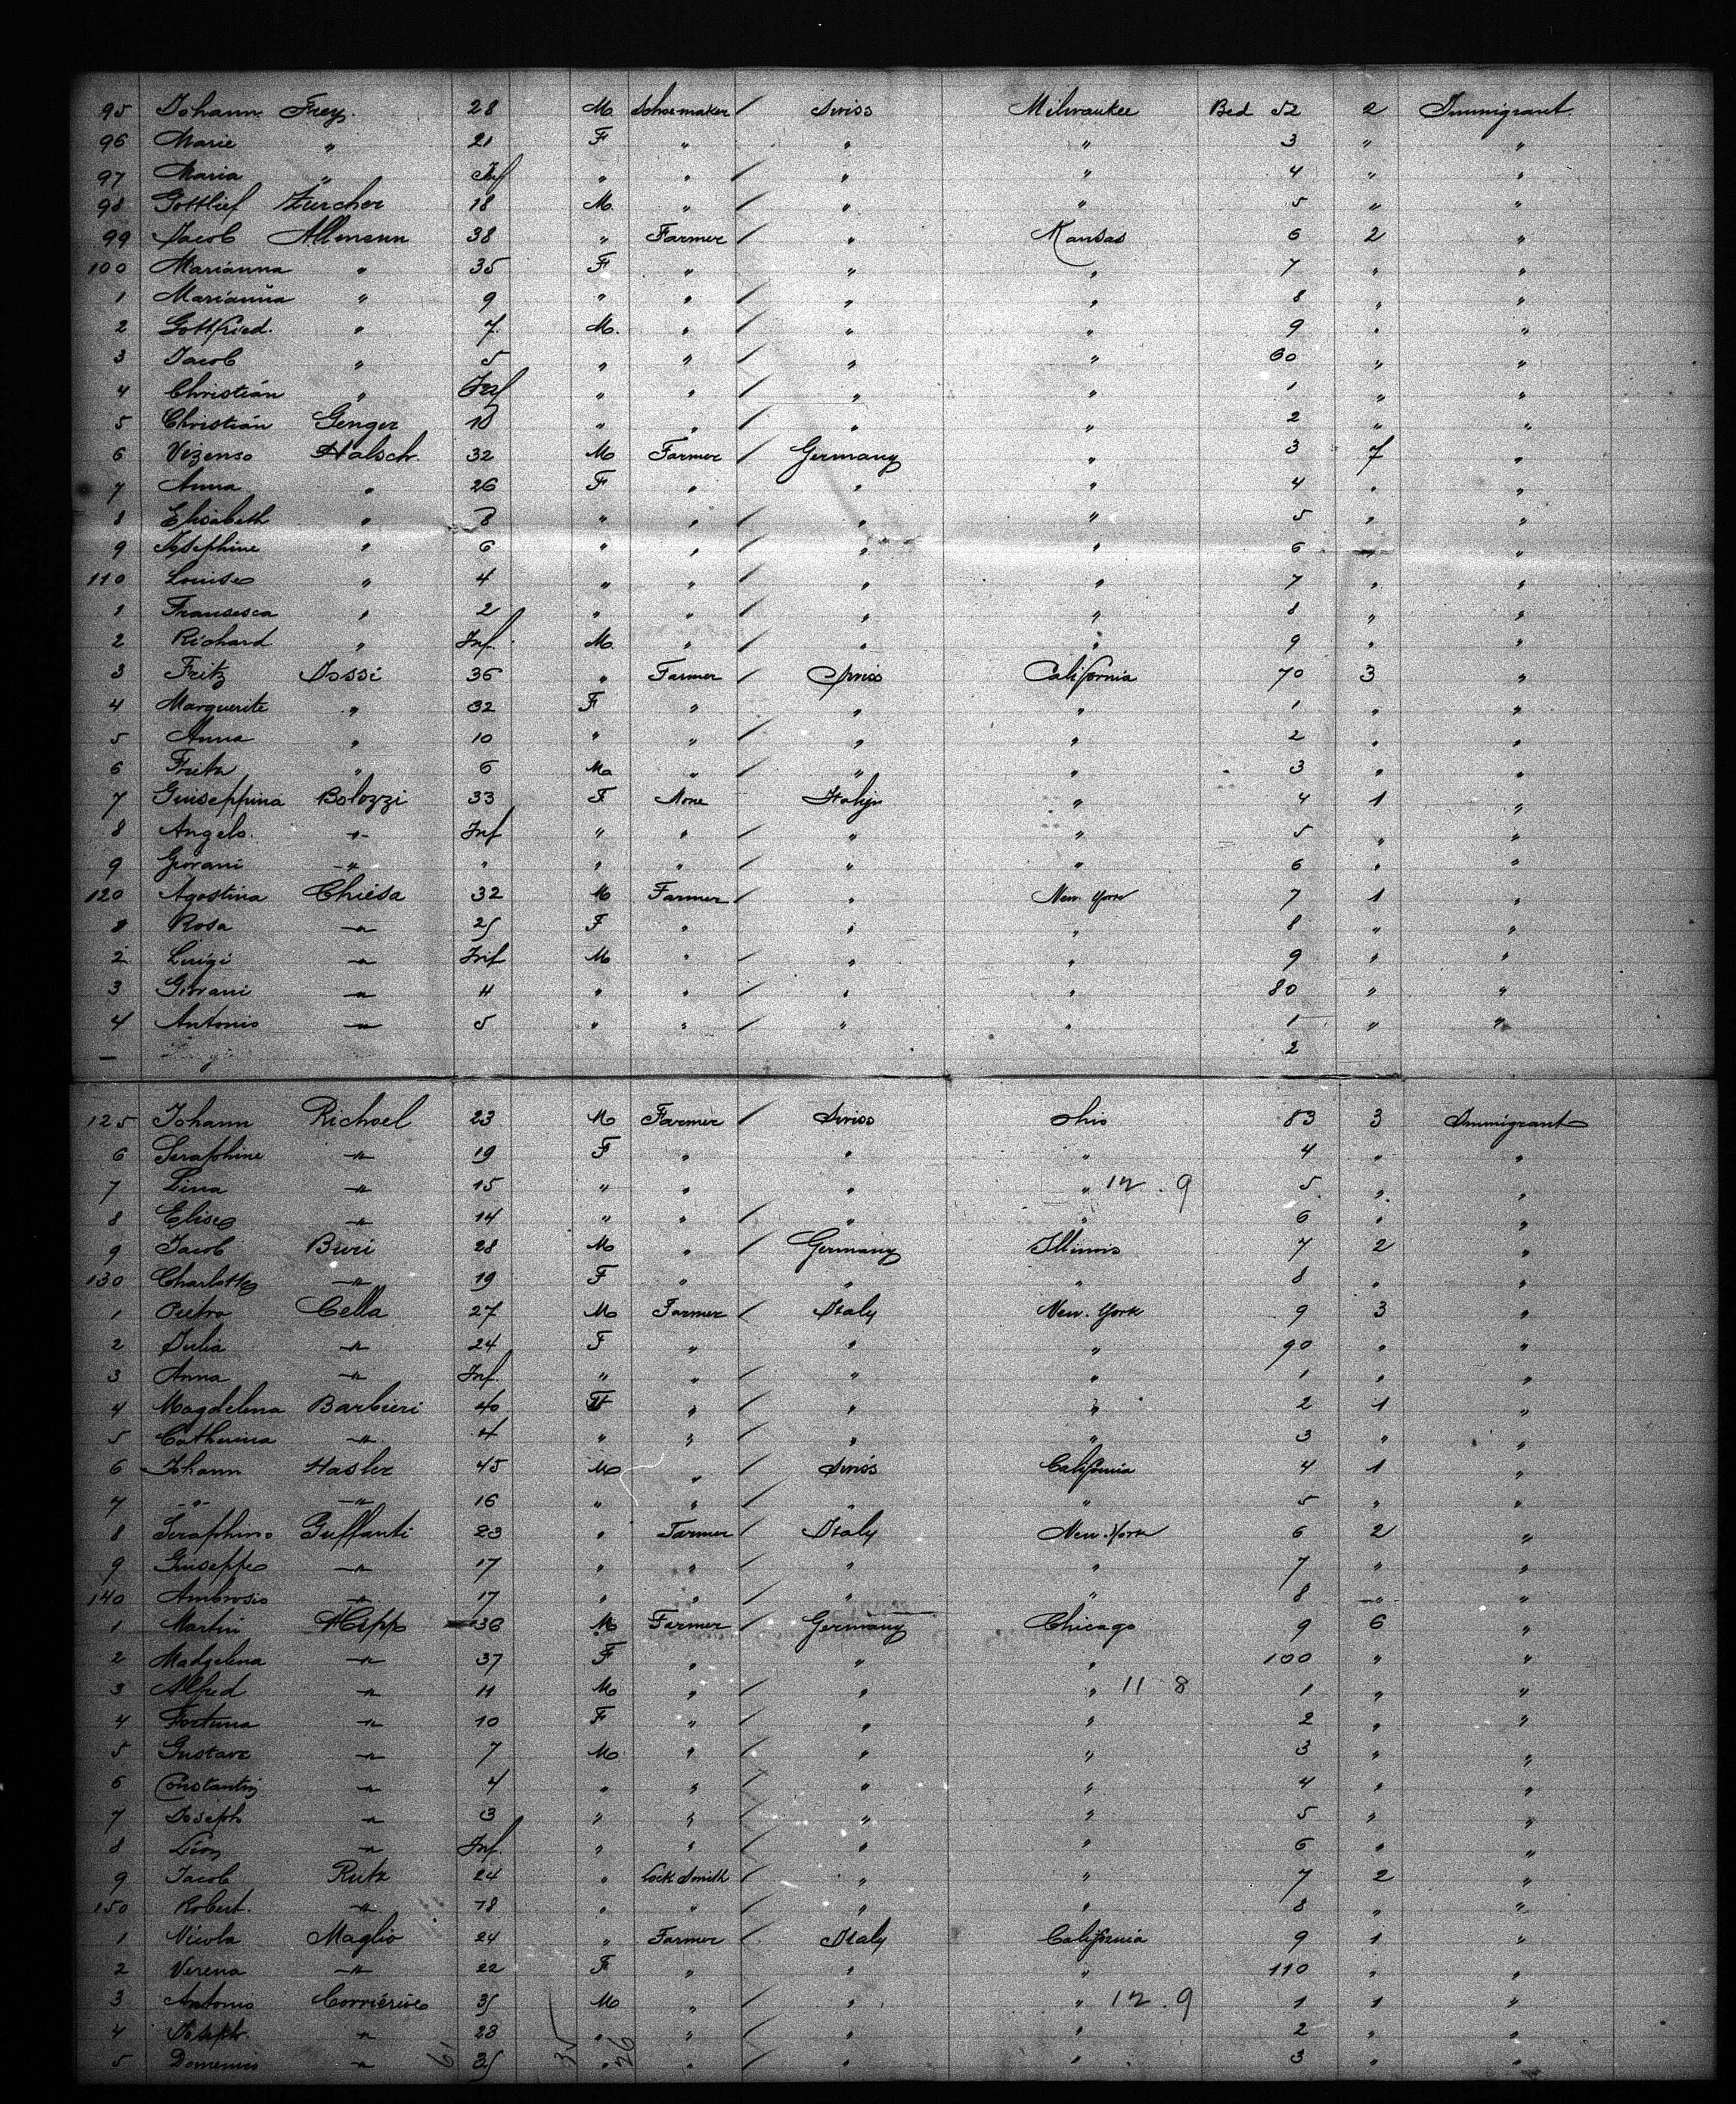 95 Johann Frey. 28 M Schoemaker / Swiss Milwaukee Bed 52 2 Immigrant.
96 Marie " 21 F " " " 3 " "
97 Maria " Inf " " / " " 4 " "
98 Gottlief Zurcher 18 M. " / " " 5 " "
99 Jacob Allmann 38 " Farmer / " Kansas 6 2 "
100 Marianna " 35 F " / " " 7 " "
1 Marianna " 9 " " / " " 8 " "
2 Gottfried. " 7. M. " / " " 9 " "
3 Jacob " 5 " " / " " 60 " "
4 Christian " Inf " " / " " 1 " "
5 Christian Genger " " / " " 2 " "
6 Vizenso Halsch. 32 M Farmer / Germany " 3 7 "
7 Anna " 26 F " / " " 4 " "
8 Elisabeth " 8 " " / " " 5 " "
9 Josephine " 6 " " / " " 6 " "
110 Louise " 4 " " / " " 7 " "
1 Fransesca " 2 " " / " " 8 " "
2 Richard " Inf. M " / " " 9 " "
3 Fritz Dossi 36 " Farmer / Swiss California 70 3 "
4 Marguerite " 32 F " / " " 1 " "
5 Anna " 10 " " / " " 2 " "
6 Fritz " 6 M " / " " 3 " "
7 Guiseppina Bolozzi 33 F None Italy " 4 1 "
8 Angelo. " Inf " " / " " 5 " "
9 Giovani " " " " / " " 6 " "
120 Agostina Chiesa 32 M Farmer / " New York 7 1 "
1 Rosa " 25 F " / " " 8 " "
2 Luigi " Inf M " / " " 9 " "
3 Giovani " 11 " " / " " 80 " "
4 Antonio " 5 " " / " " 1 " "
— 2
125 Johann Richsel 23 M Farmer / Swiss Ohio 83 3 Immigrant
6 Seraphine " 19 F " " " 4 " "
7 Lina " 15 " " " " 12.9 5 " "
8 Elise " 14 " " / " " 6 " "
9 Jacob Buri 28 M " / Germany Illinois 7 2 "
130 Charlotte " 19 F " " " 8 " "
1 Pietro Cella 27 M Farmer / Italy New.York 9 3 "
2 Julia " 24 F " " " 90 " "
3 Anna " Inf. " " / " " 1 " "
4 Magdelena Barbieri 40 F " / " " 2 1 "
5 Catherina " 4 " " / " " 3 " "
6 Johann Hasler 45 M " / Swiss California 4 1 "
7 " " 16 " " / " " 5 " "
8 Seraphino Guffanti 23 " Farmer / Italy New.York 6 2 "
9 Guiseppe " 17 " " / " " 7 " "
140 Ambrosio " 17 " " / " " 8 " "
1 Martin Hipp 36 M Farmer / Germany Chicago 9 6 "
2 Madgelena " 37 F " " " 100 " "
3 Alfred " 11 M " / " " 11 8 1 " "
4 Fortuna " 10 F " / " " 2 " "
5 Gustave " 7 M " / " " 3 " "
6 Constantin " 4 " " / " " 4 " "
7 Joseph " 3 " " / " " 5 " "
8 Leon " Inf. " " / " " 6 " "
9 Jacob Rutz 24 " Lock Smith / " " 7 2 "
150 Robert. " 18 " " / " " 8 " "
1 Nicola Maglio 24 " Farmer / Italy California 9 1 "
2 Verena " 22 F " / " " 110 " "
3 Antonio 35 M " / " " 12.9 1 1 "
4 Joseph. " 28 " " / " " 2 " "
5 Domenico " 35 " " / " " 3 " "
61 35 26